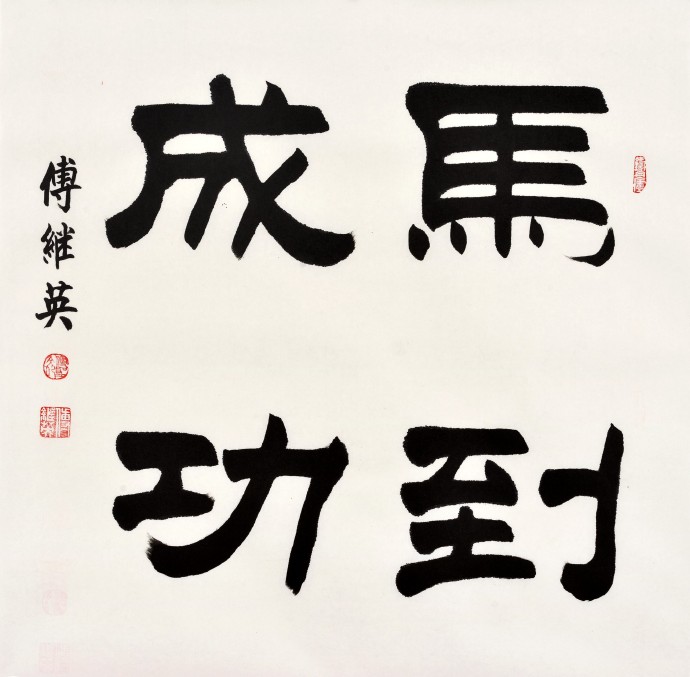 馬到
成功
傅継英